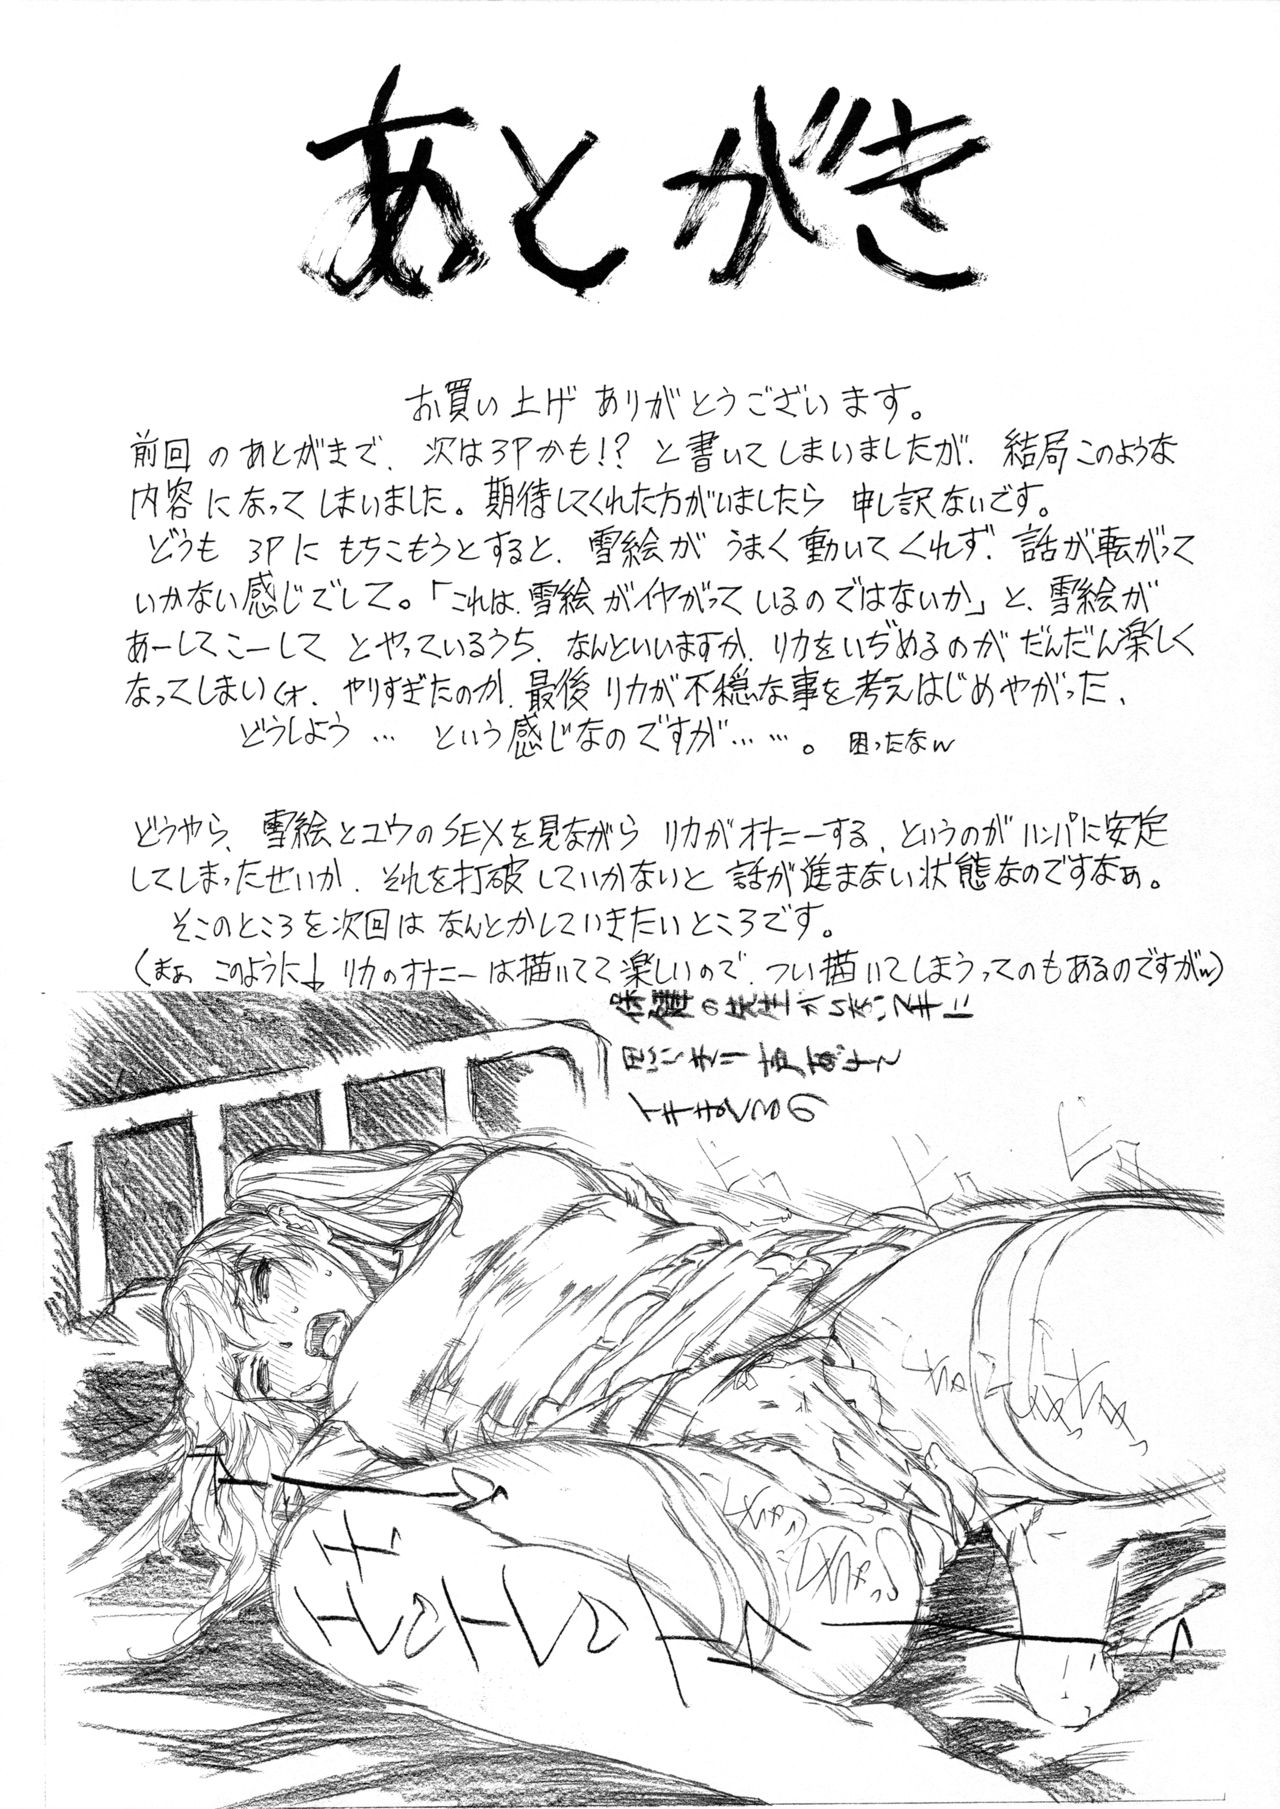 あとがき
お買い上げ ありがとうございます。
前回のあとがきで、次は3Pかも!?と書いてしまいましたが、結局このような
内容になってしまいました。期待してくれた方がいましたら 申し訳ないです。
どうも 3Pに もちこもうとすると、雪絵が うまく動いてくれず、話が転がって
いかない感じでして。「これは、雪絵がイヤがっているのではないか」と、雪絵が
あーしてこーして とやっているうち、なんといいますか、リカをいぢめるのが だんだん楽しく
なってしまい(オ、やりすぎたのか、最後 リカが不穏な事を考えはじめやがった、
どうしよう… という感じなのですが……。困ったなw
どうやら、雪絵とユウのSEXを見ながら リカがオナニーする、というのが ハンパに安定
してしまったせいか、それを打破していかないと 話が進まない状態なのですなぁ。
そこのところを次回は なんとかしていきたいところです。
(まぁ このように↓ リカのオナニーは描いてて楽しいので、つい描いてしまうってのもあるのですがw)
保健の先生がいないスキに
思いきり声あげて
イキまくるの
ビクッ
ビクッ
ビクッ
ちゅっ
ちゅっ